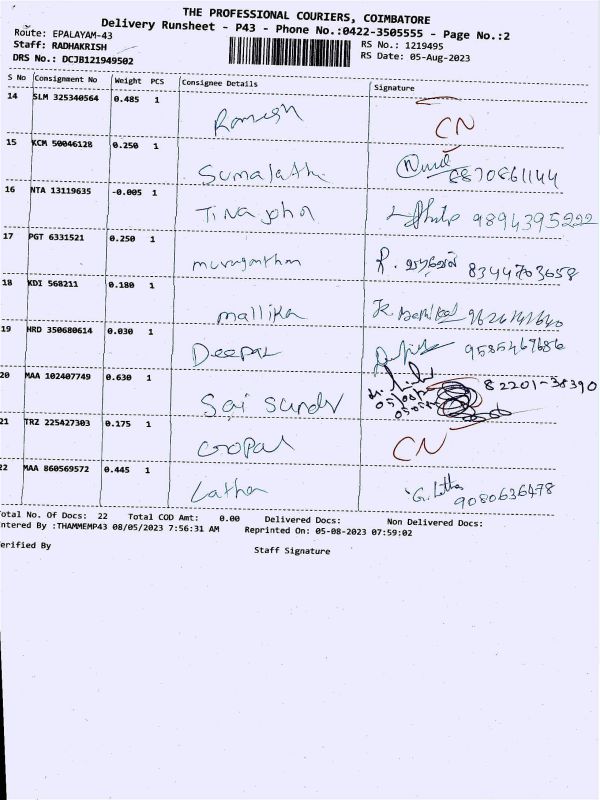 THE PROFESSIONAL COURIERS, COIMBATORE
Delivery Runsheet - P43 - Phone No.:0422-3505555 - Page No.:2
Route: EPALAYAM-43
Staff: RADHAKRISH
RS No.: 1219495
DRS No.: DCJB121949502
RS Date: 05-Aug-2023
S No Consignment No Weight PCS Consignee Details Signature
14 SLM 325340564 0.485 1
Ramesh CN
15 KCM 50046128 0.250 1
Sumalatha 8870861144
16 NTA 13119635 -0.005 1
Tina john 9894395222
17 PGT 6331521 0.250 1
murugantham 8344703658
18 KDI 568211 0.180 1
mallika
19 HRD 350680614 0.030 1
Deepaz 9585467686
20 MAA 102407749 0.630 1
Sai sundr 82201-38390
21 TRZ 225427303 0.175 1
Gopal CN
22 MAA 860569572 0.445 1
Latha G. Latha
9080636478
Total No. Of Docs: 22 Total COD Amt: 0.00 Delivered Docs: Non Delivered Docs:
ntered By :THAMMEMP43 08/05/2023 7:56:31 AM Reprinted On: 05-08-2023 07:59:02
erified By
Staff Signature